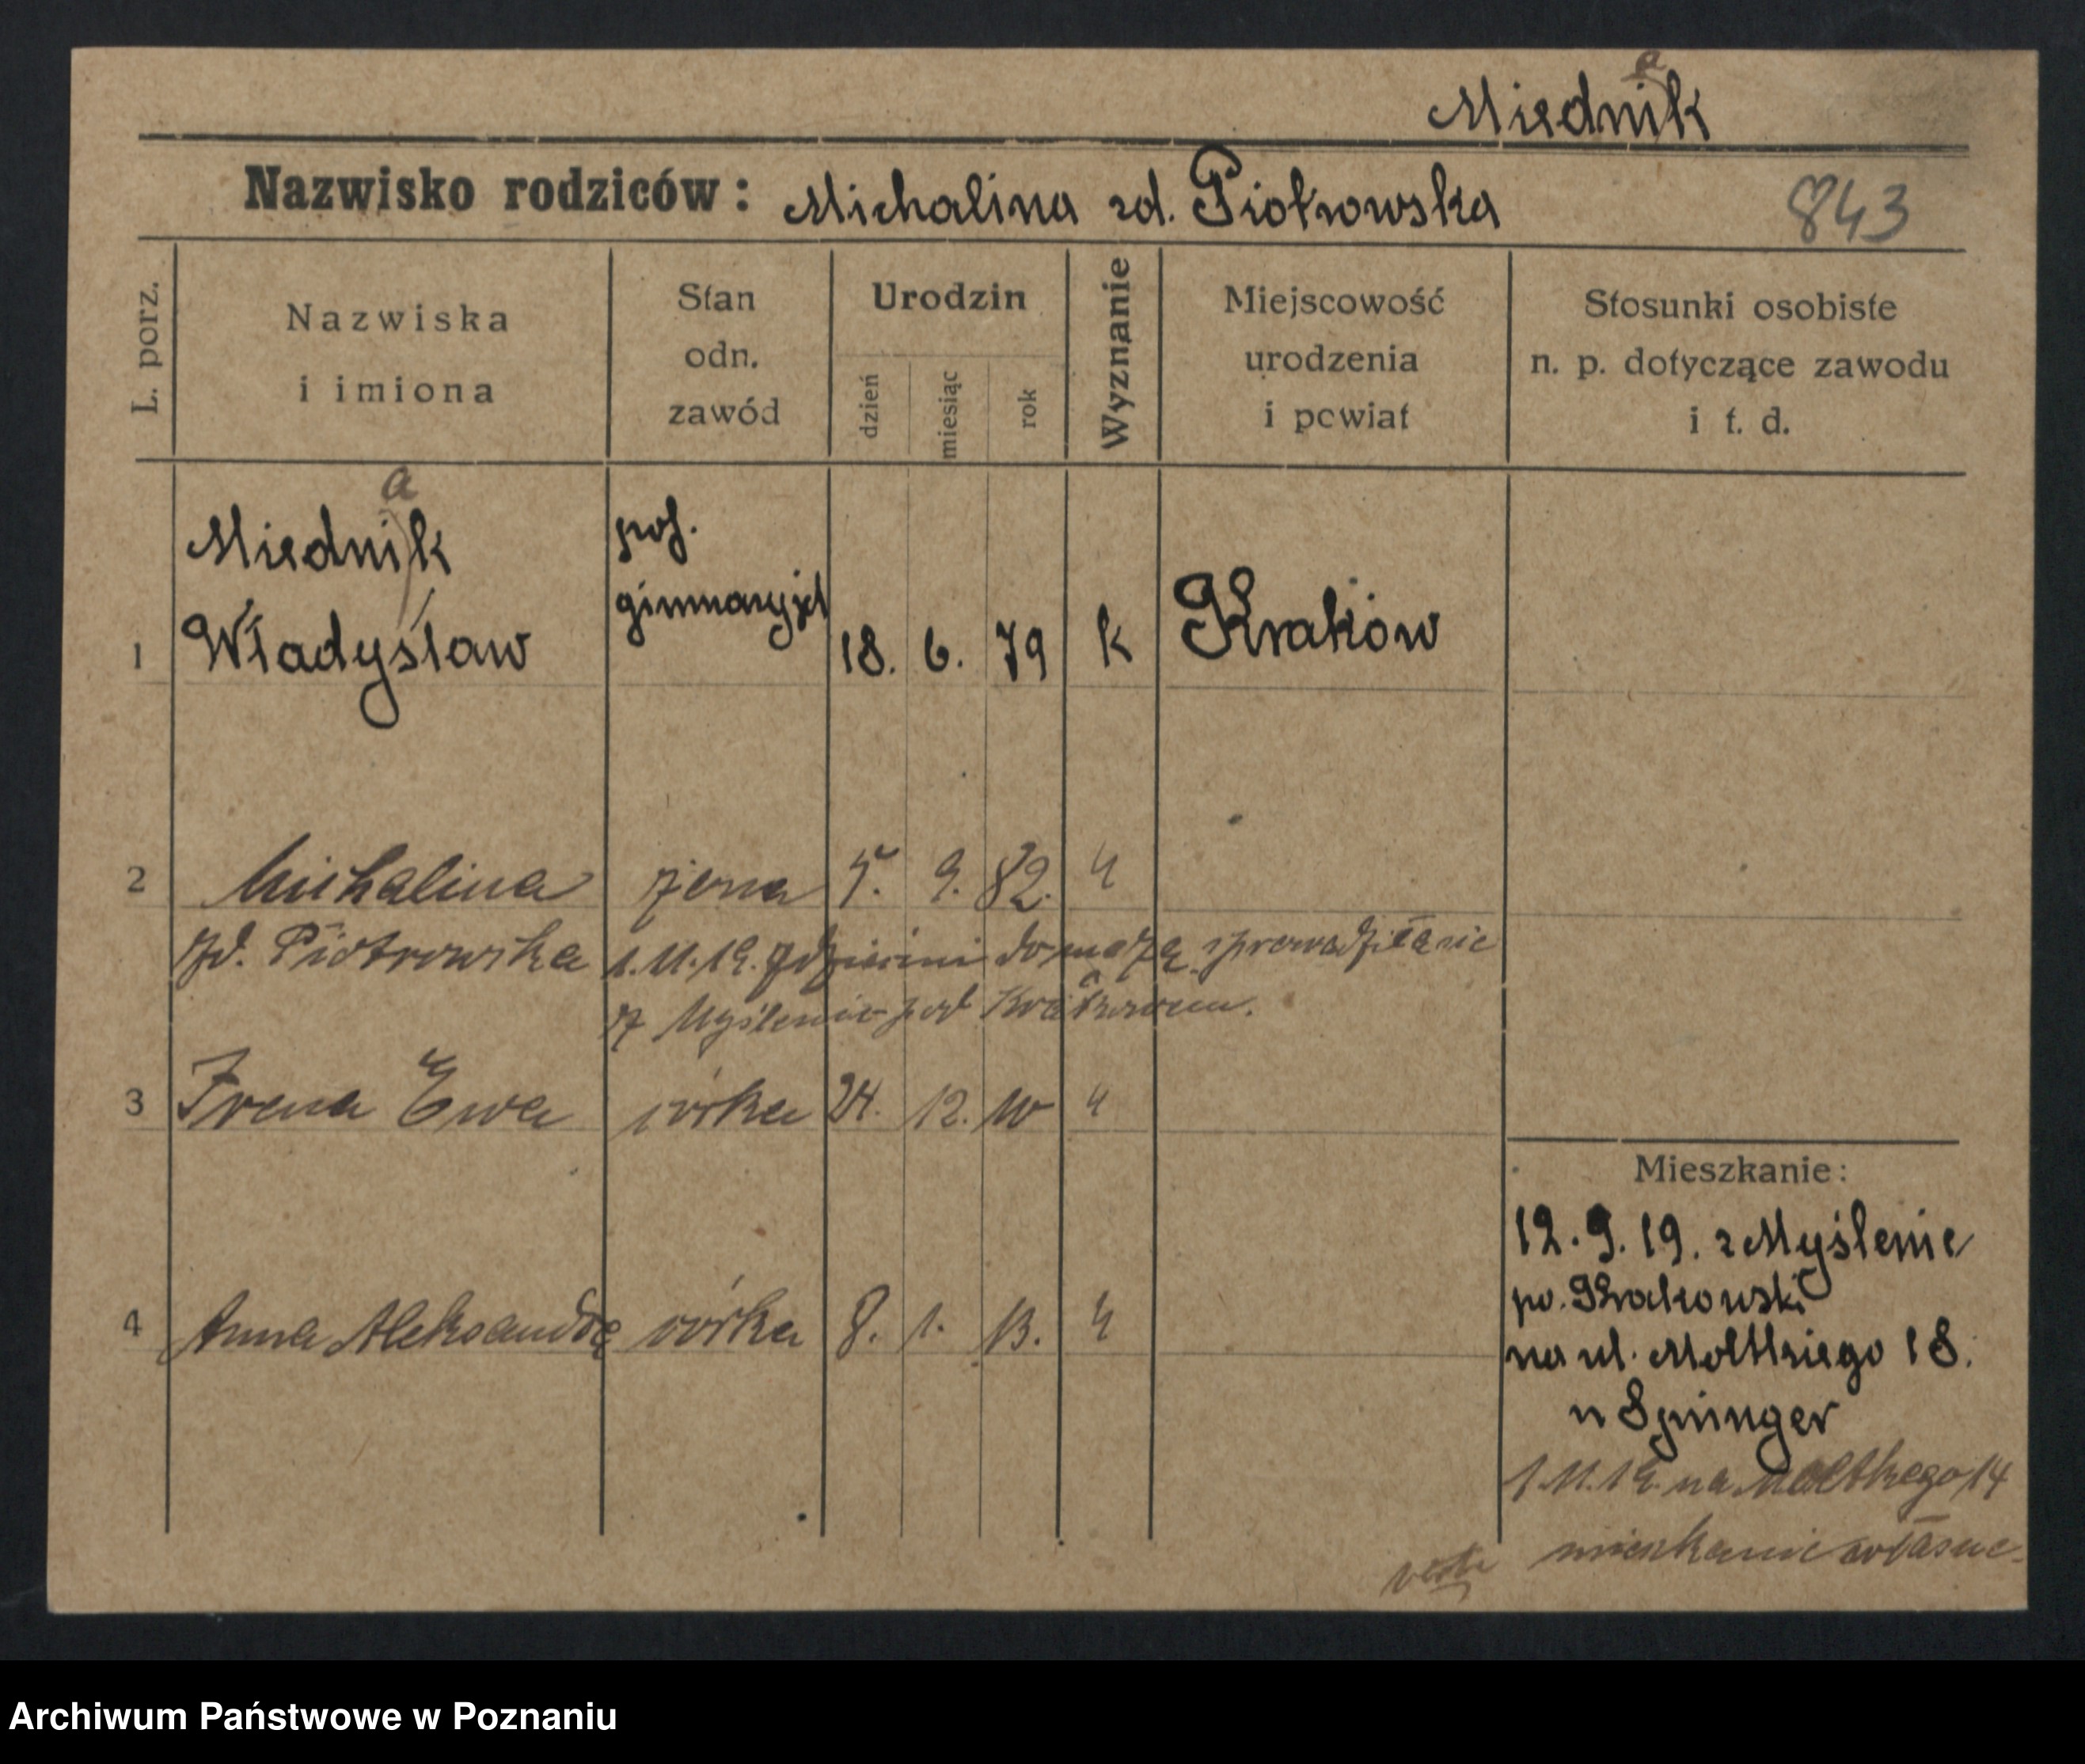 a
Miednik
Nazwisko rodziców: Michalina zd. Piotrowska 843
L. porz.
Nazwiska
i imiona
Stan
odn.
zawód
Urodzin
dzień
miesiąc
rok
Wyznanie
Miejscowość
urodzenia
i powiat
Stosunki osobiste
n. p. dotyczące zawodu
i t. d.
a
Miednik
prof.
1 Władysław 18. 6. 79 k Kraków
2 Michalina żena 5. 9. 82. "
zd. Piotrowska 1.11.19. z dziećmi do męża sprowadziła się
z Myślenic pod Krakowem.
3 Irena Ewa córka 24. 12. 10 "
4 Anna Aleksandra córka 8. 1. 13. "
Mieszkanie:
12.9.19. z Myślenic
pw. Krakowski
na ul. Moltkiego 18.
u Springer
1.11.19. na Moltkego 14
mieszkanie własne.
Archiwum Państwowe w Poznaniu